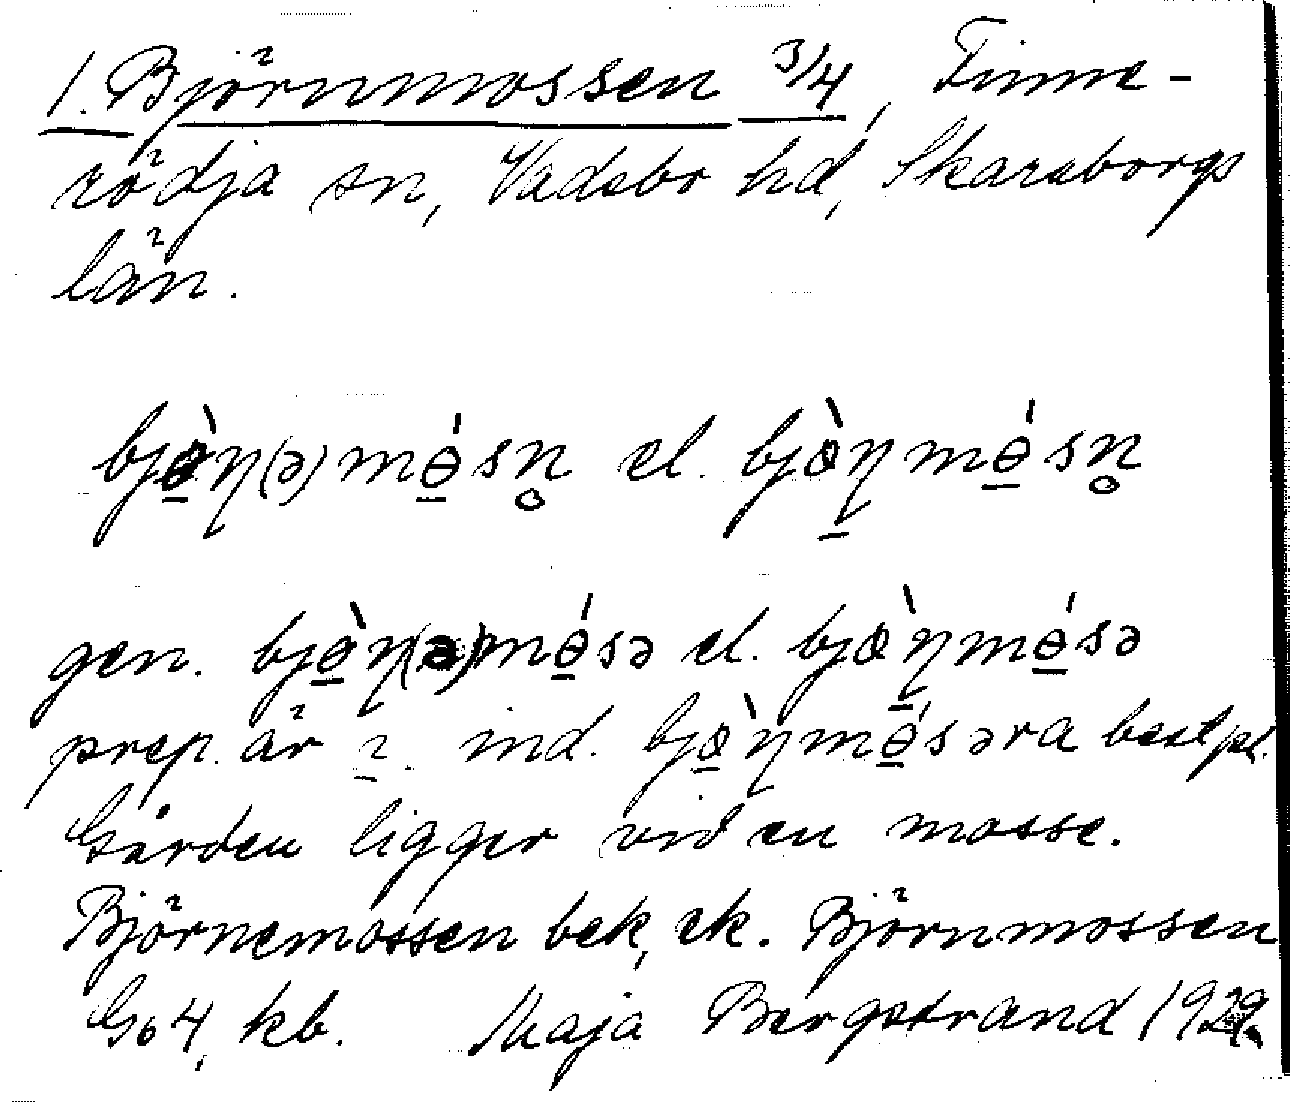 1. Björnmossen 3/4, Finne-
rödja sn, Vadsbo hd, Skaraborgs
län.
bjɵ̠̀ɳ(ə)mɵ̠́sn̥ el. bjɵ̀ɳ̠mɵ̠́sn̥
gen. bjɵ̠̀ɳ(ə)mɵ̠́sə el. bjɵ̀ɳ̠mɵ̠́sə
prep. är i. ind. bjɵ̠̀ɳmɵ̠́səra best pl.
Gården ligger vid en mosse.
Björnemossen bek, ek. Björnmossen
Go 4, kb. Maja Bergstrand 1929.